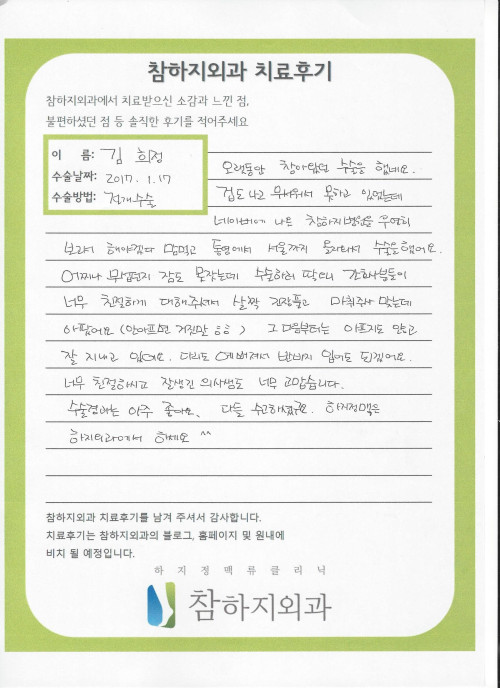 참하지외과 치료후기
참하지외과에서 치료받으신 소감과 느낀 점,
불편하셨던 점 등 솔직한 후기를 적어주세요
이 름: 김 희정
수술날짜: 2017. 1. 17
수술방법: 절개수술
오랫동안 참아왔던 수술을 했네요.
겁도 나고 무서워서 못하고 있었는데
네이버에 나온 참하지병원을 우연히
보고서 해야겠다 맘먹고 통영에서 서울까지 올라와서 수술을 했어요.
어찌나 무섭던지 잠도 못잤는데 수술하러 딱오니 간호사분들이
너무 친절하게 대해주셔서 살짝 긴장풀고 마취주사 맞는데
아팠어요 (안아프면 거짓말 ㅎㅎ) 그 다음부터는 아프지도 않고
잘 지내고 있어요. 다리도 예뻐져서 반바지 입어도 되겠어요.
너무 친절하시고 잘생긴 의사샘도 너무 고맙습니다.
수술결과는 아주 좋아요, 다들 수고하셨구요. 하지정맥은
하지외과에서 하세요 ^^
참하지외과 치료후기를 남겨 주셔서 감사합니다.
치료후기는 참하지외과의 블로그, 홈페이지 및 원내에
비치 될 예정입니다.
하 지 정 맥 류 클 리 닉
참하지외과